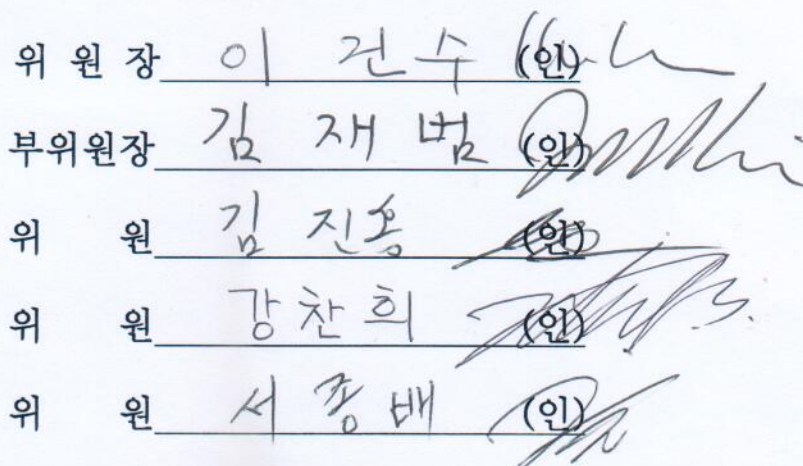 위 원 장 이 건 수 (인)
부위원장 김 재 범 (인)
위 원 김 진용 (인)
위 원 강찬희 (인)
위 원 서종배 (인)